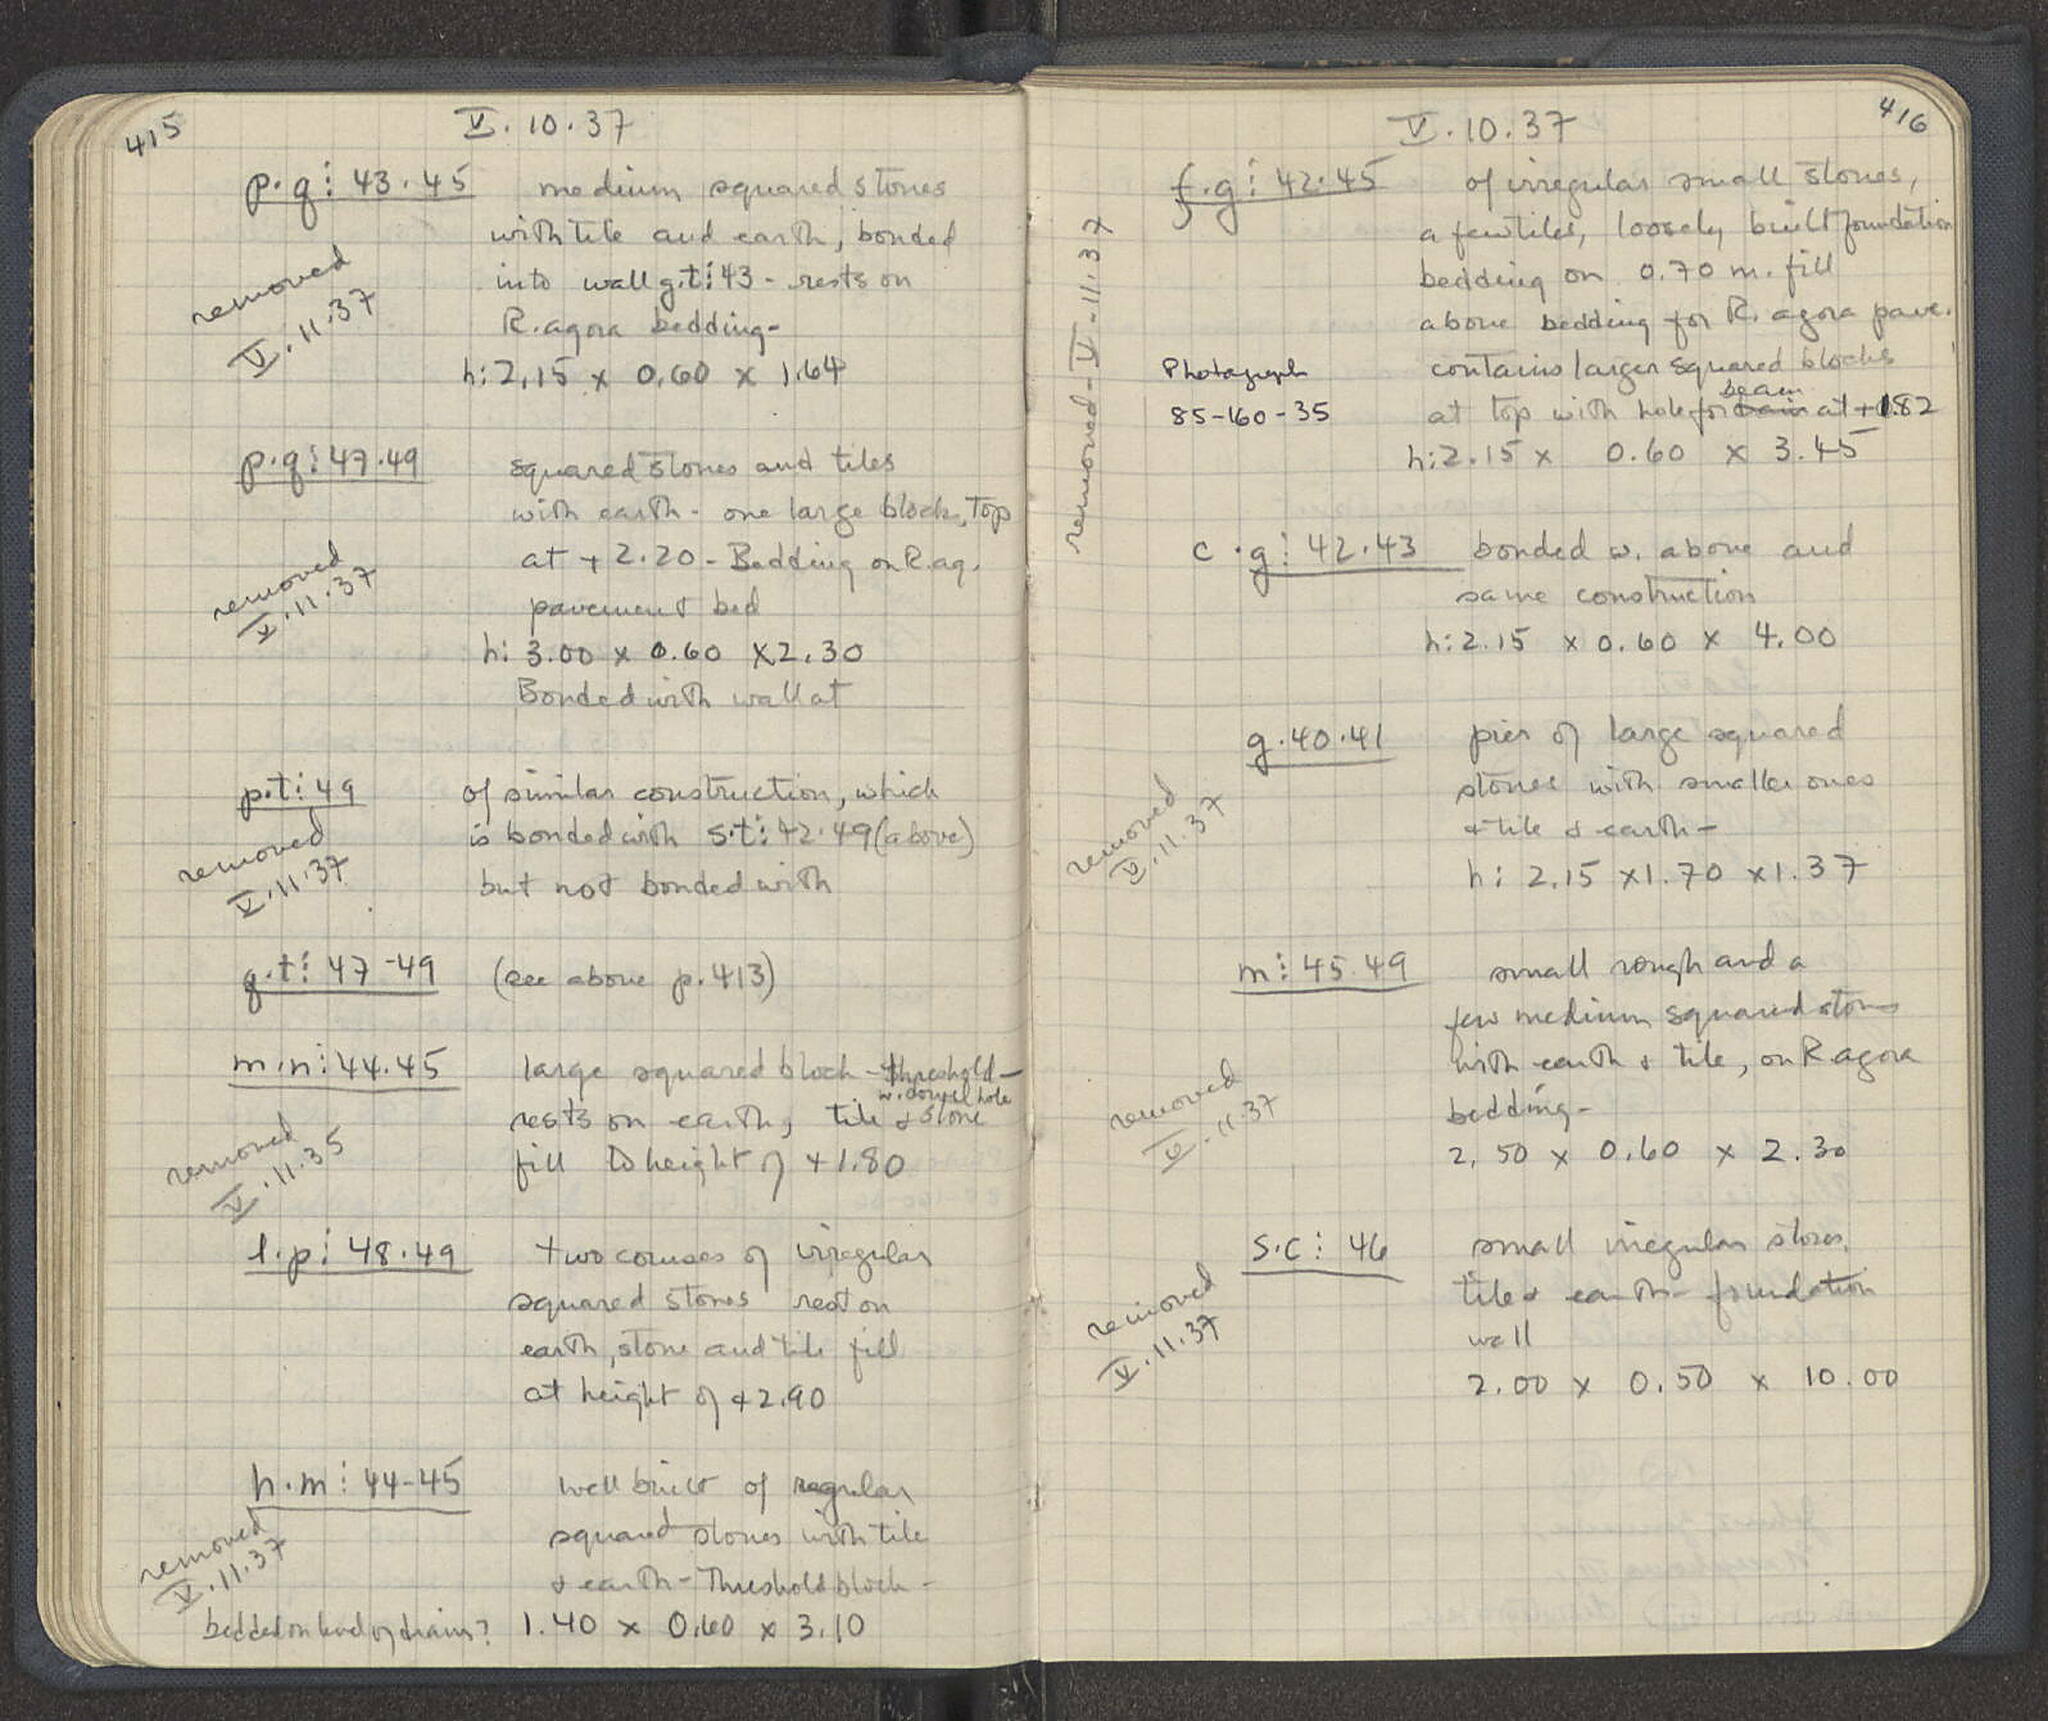 415
V. 10. 37
p.q: 43.45 medium squared stones
with tile and earth, bonded
into wall q.t: 43 - rests on
R. agora bedding-
h: 2.15 x 0.60 x 1.64
removed
V. 11.37
p.q: 47.49 squared stones and tiles
with earth - one large block, top
at + 2.20 - Bedding on R. ag.
pavement bed
h: 3.00 x 0.60 x 2.30
Bonded with wall at
removed
V. 11.37
p.t: 49 of similar construction, which
is bonded with s.t: 42.49 (above)
but not bonded with
removed
V. 11.37
q.t: 47-49 (see above p. 413)
m.n: 44.45 large squared block - threshold -
w. dowel hole
rests on earth, tile & stone
fill to height of + 1.80
removed
V. 11.35
l.p: 48.49 two courses of irregular
squared stones rest on
earth, stone and tile fill
at height of + 2.90
h.m: 44-45 well built of regular
squared stones with tile
& earth - Threshold block -
removed
V. 11.37
bedded on level of drain? 1.40 x 0.60 x 3.10
416
V. 10. 37
f.g: 42.45 of irregular small stones,
a few tiles, loosely built foundation
bedding on 0.70 m. fill
above bedding for R. agora pave.
contains larger squared blocks
beam
at top with hole for at + 1.82
h: 2.15 x 0.60 x 3.45
removed - V - 11.37
Photograph
85-160-35
c.g: 42.43 bonded w. above and
same construction
h: 2.15 x 0.60 x 4.00
g.40.41 pier of large squared
stones with smaller ones
& tile & earth -
h: 2.15 x 1.70 x 1.37
removed
V. 11.37
m: 45.49 small rough and a
few medium squared stones
with earth & tile, on R. agora
bedding -
2.50 x 0.60 x 2.30
removed
V. 11.37
s.c: 46 small irregular stones,
tile & earth - foundation
wall
2.00 x 0.50 x 10.00
removed
V. 11.37